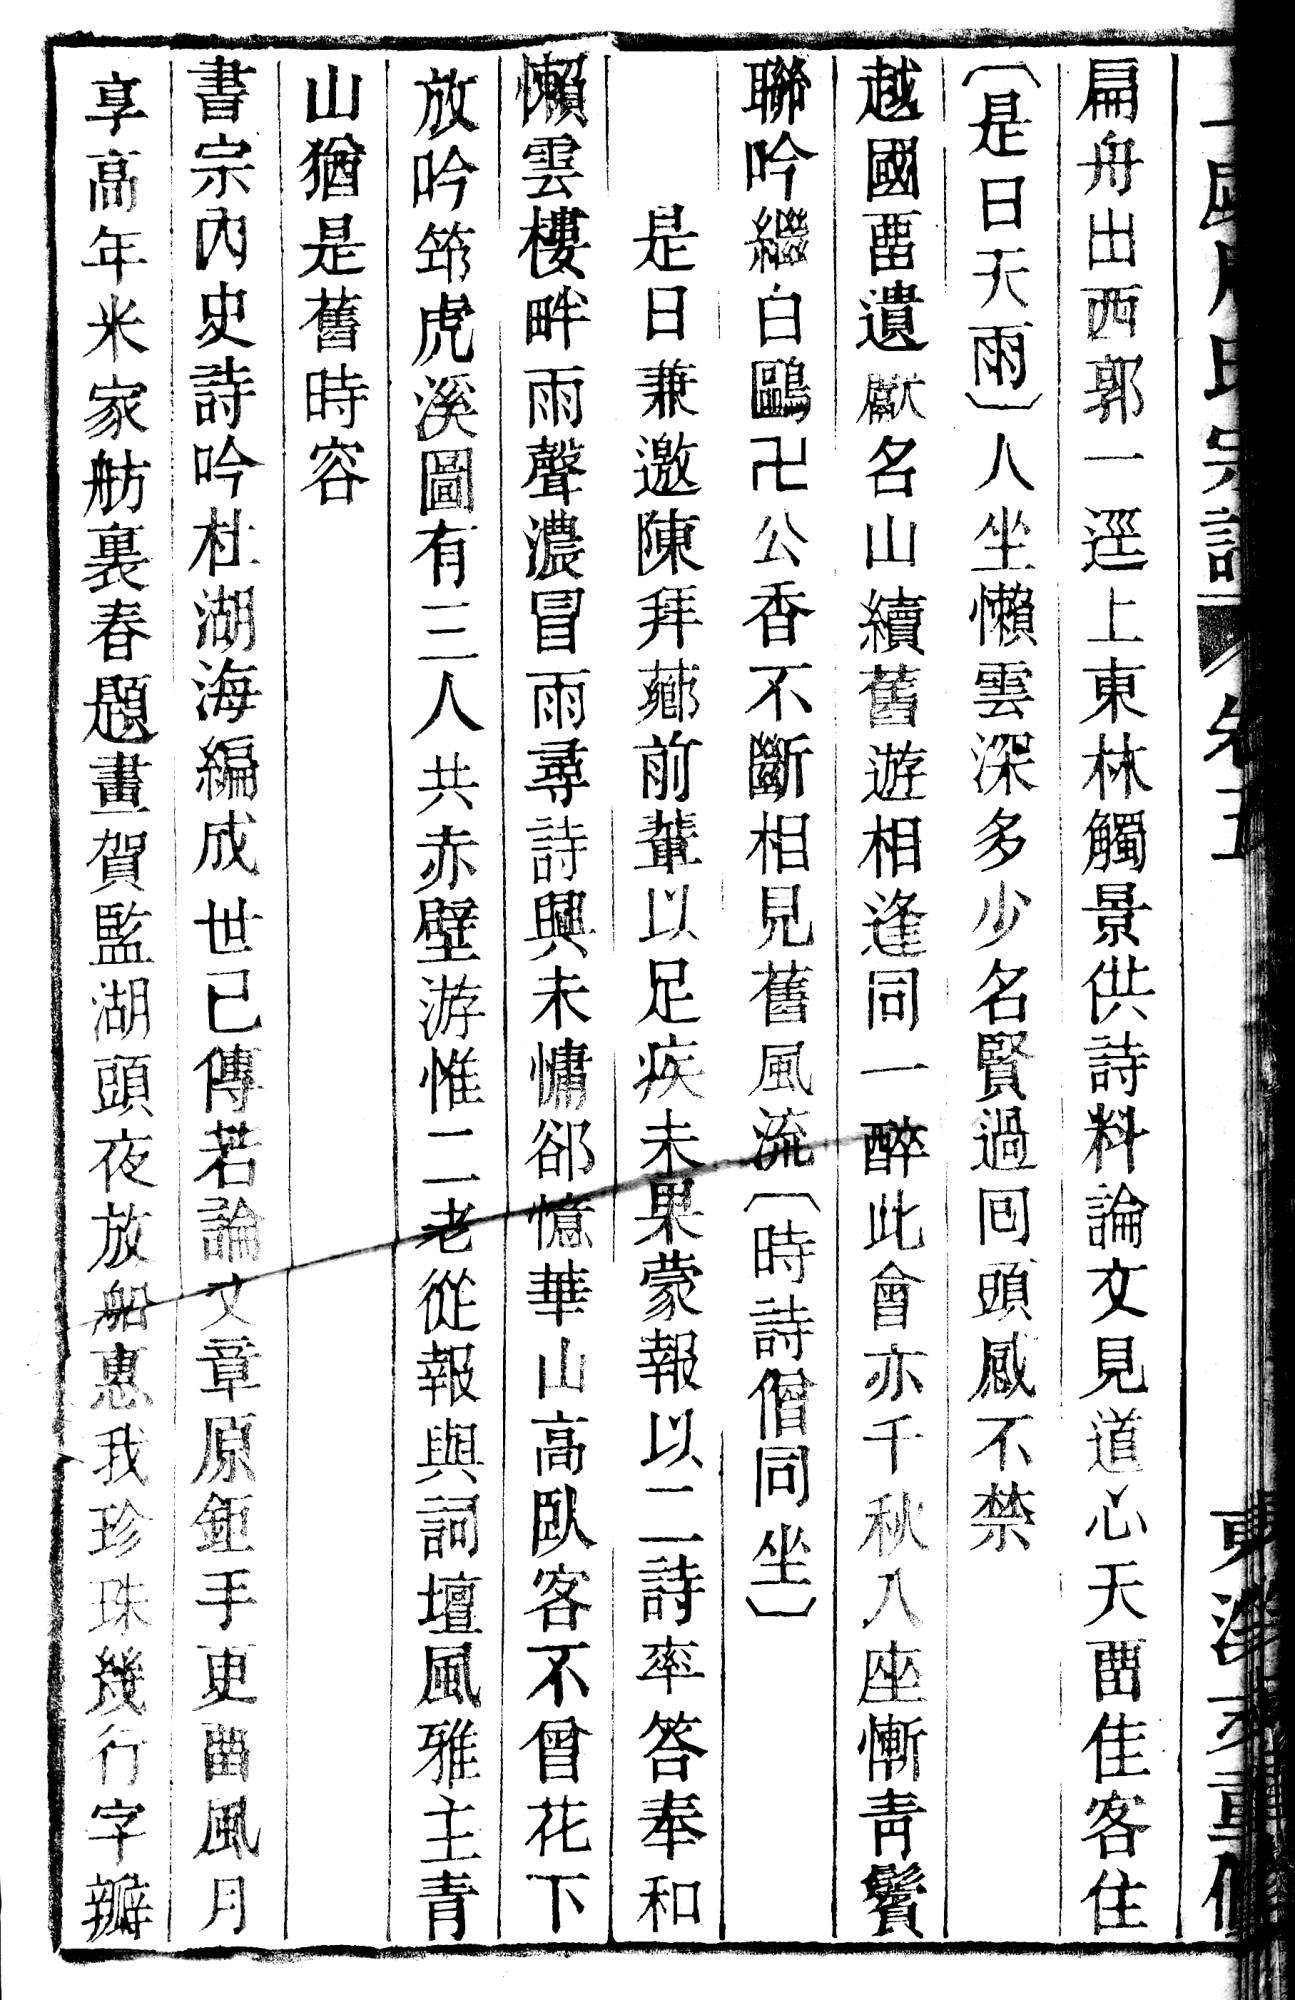 扁舟出西郭一逕上東林觸景供詩料論文見道心天畱佳客住
〔是日天雨〕人坐懶雲深多少名賢過囘頭感不禁
越國畱遺獻名山續舊遊相逢同一醉此會亦千秋入座慚青鬢
聯吟繼白鷗卍公香不斷相見舊風流〔時詩僧同坐〕
是日兼邀陳拜薌前輩以足疾未果蒙報以二詩率答奉和
懶雲樓畔雨聲濃冒雨尋詩興未慵郤憶華山高臥客不曾花下
放吟筇虎溪圖有三人共赤壁游惟二老從報與詞壇風雅主青
山猶是舊時容
書宗內史詩吟杜湖海編成世已傳若論文章原鉅手更畱風月
享高年米家舫裏春題畫賀監湖頭夜放船惠我珍珠幾行字瓣